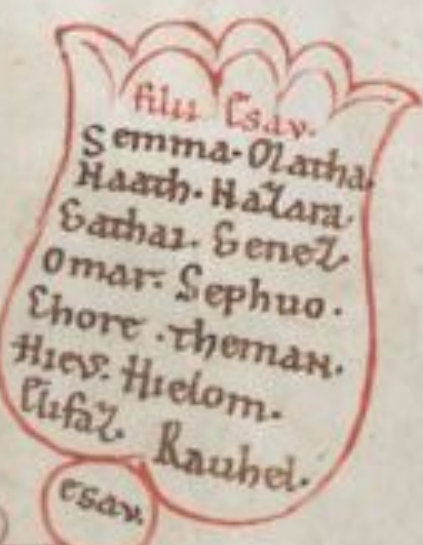 filii Esav.
Semma. Olatha.
Naath. Nazara.
Gathai. Genez.
Omar. Sephuo.
Chore. Theman.
Hiev. Hielom.
Elifaz. Rauhel.
esav.